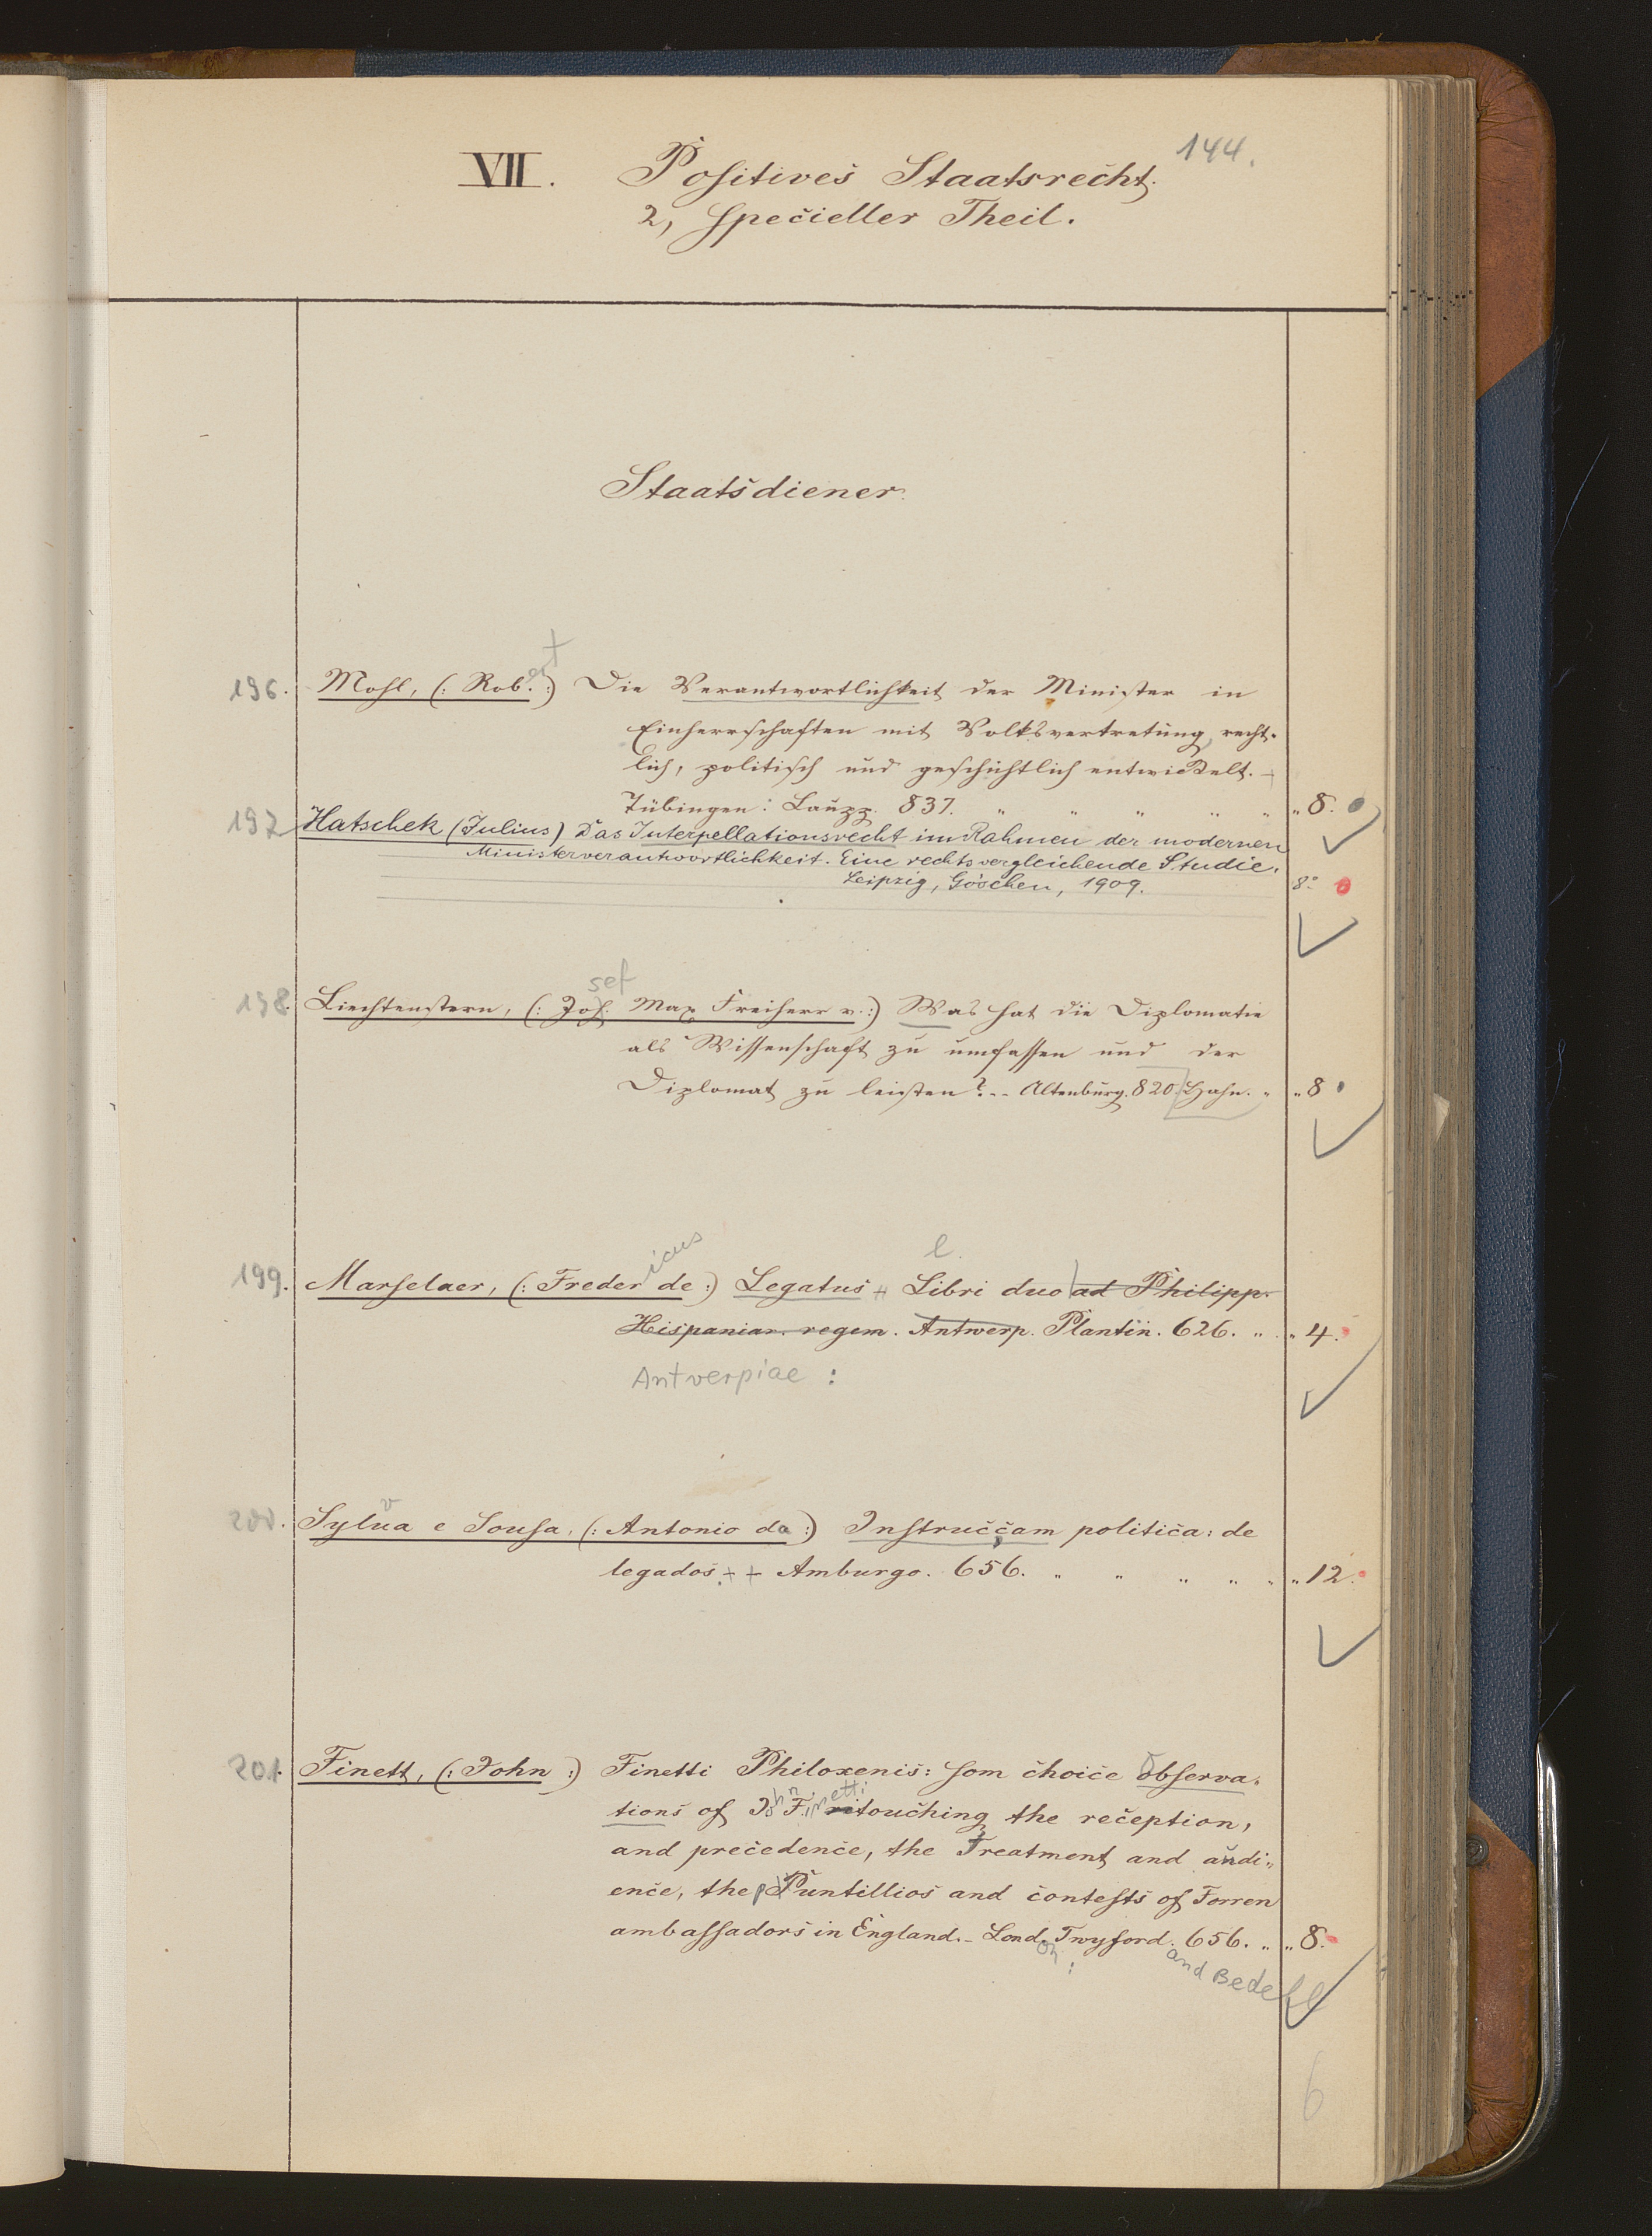 144.
VII. Positives Staatsrecht.
2, specieller Theil.
Staatsdiener.
196. Mohl, (: Rob.ert :) Die Verantwortlichkeit der Minister in
Einherrschaften mit Volksvertretung, recht-
lich, politisch und geschichtlich entwickelt. –
Tübingen: Laupp. 837. „ „ „ „ „ „ 8.
197 Hatschek (Julius) Das Interpellationsrecht im Rahmen der modernen
Ministerverantwortlichkeit. Eine rechtsvergleichende Studie.
Leipzig, Göschen, 1909. 8°
sef
198. Liechtenstern, (: Jos. Max Freiherr v. :) Was hat die Diplomatie
als Wissenschaft zu umfassen und der
Diplomat zu leisten? -- Altenburg. 820. Hahn. „ „ 8
icus l.
199. Marselaer, (: Freder de :) Legatus Libri duo ad Philipp.
Hispaniar. regem. Antwerp. Plantin. 626. „ „ 4.
Antverpiae :
v
200. Sylua e Sousa, (: Antonio da :) Instrucçam politica: de
legados. + + Amburgo. 656. „ „ „ „ „ „ 12.
201. Finett, (: John :) Finetti Philoxenis: som choice observa-
tions of John F.inetti touching the reception,
and precedence, the Treatment and audi-
ence, the p Puntillios and contests of Forren
ambassadors in England. – Lond. Twyford. 656. „ „ 8.
on : and Bedell
6